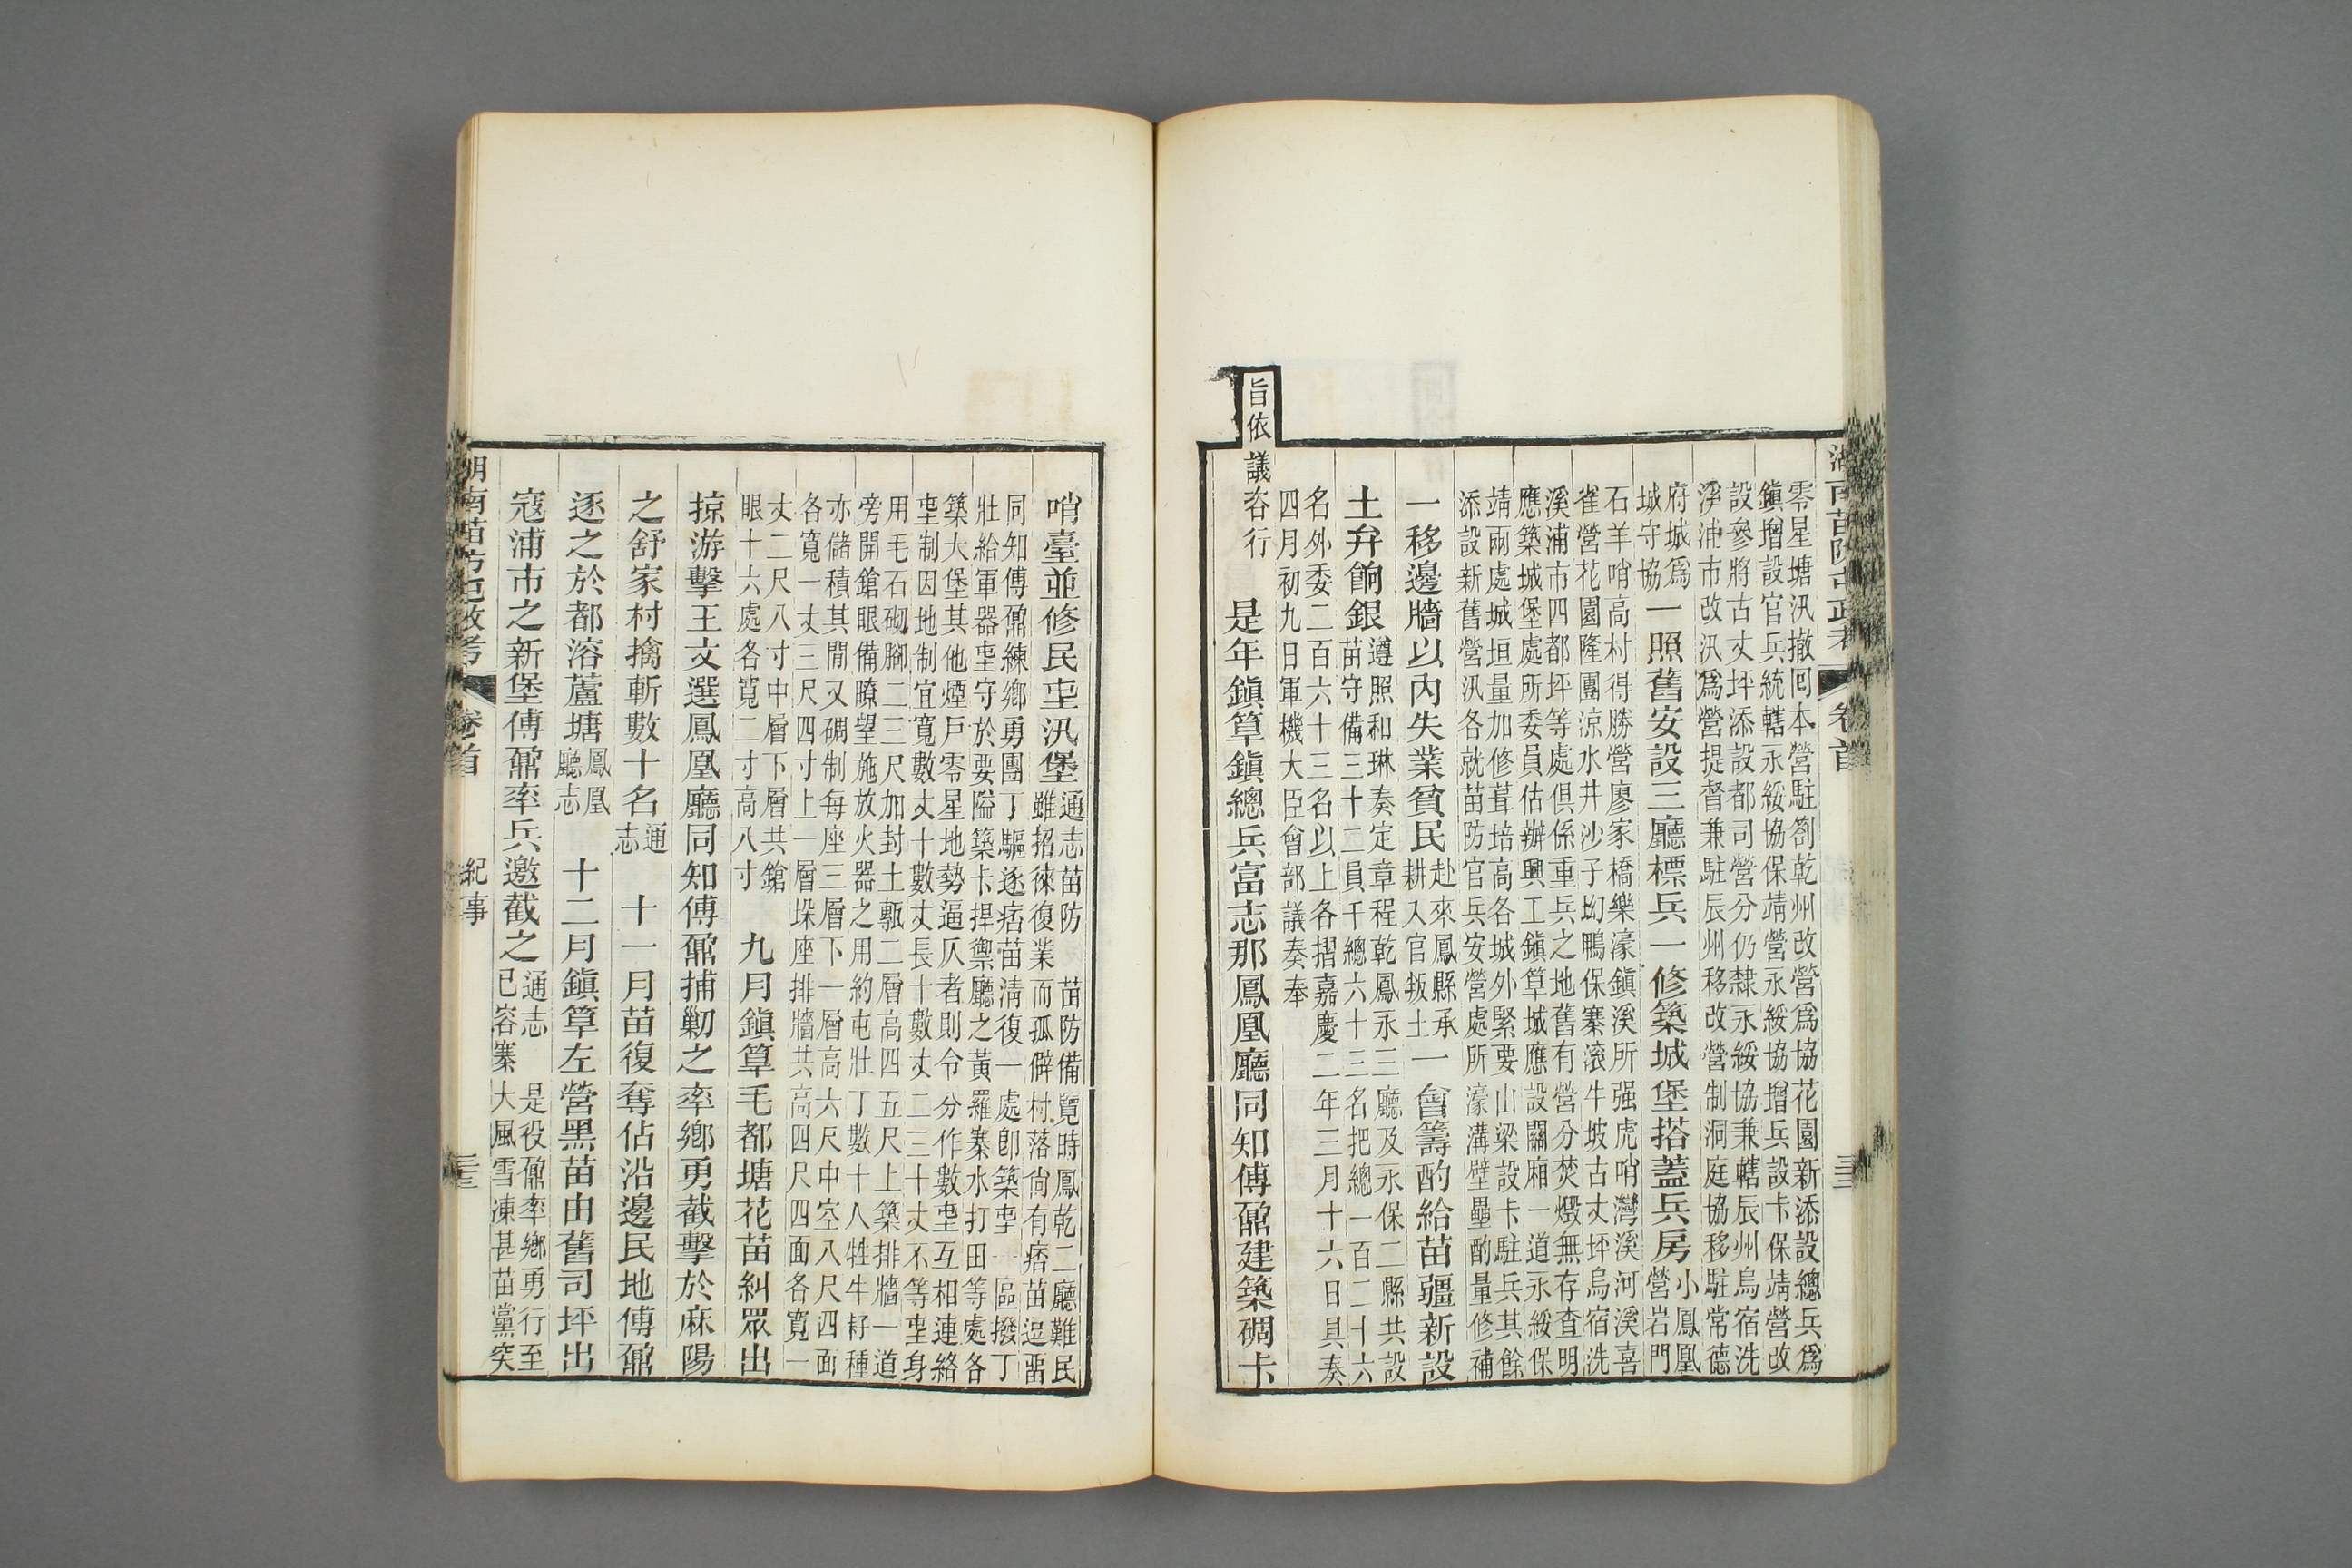 湖南苗防屯政考
卷首
零星塘汛撤回本營駐劄乾州改營爲協花園新添設總兵爲
鎮增設官兵統轄永綏協保靖營永綏協增兵設卡保靖營改
設參將古丈坪添設都司營分仍隸永綏協兼轄辰州烏宿洗
溪浦市改汛爲營提督兼駐辰州移改營制洞庭協移駐常德
府城爲
城守協
一照舊安設三廳標兵一修築城堡搭蓋兵房
小鳳凰
營岩門
石羊哨高村得勝營廖家橋樂濠鎮溪所强虎哨灣溪河溪喜
雀營花園隆團涼水井沙子坳鴨保寨滚牛坡古丈坪烏宿洗
溪浦市四都坪等處俱係重兵之地舊有營分焚燬無存查明
應築城堡處所委員估辦興工鎮筸城應設關廂一道永綏保
靖兩處城垣量加修葺培高各城外緊要山梁設卡駐兵其餘
添設新舊營汛各就苗防官兵安營處所濠溝壁壘酌量修補
一移邊牆以內失業貧民
赴來鳳縣承
耕入官叛土
一會籌酌給苗疆新設
土弁餉銀
遵照和琳奏定章程乾鳳永三廳及永保二縣共設
苗守備三十二員千總六十三名把總一百二十六
名外委二百六十三名以上各摺嘉慶二年三月十六日具奏
四月初九日軍機大臣會部議奏奉
旨依議咨行
是年鎮筸鎮總兵富志那鳳凰廳同知傅鼐建築碉卡
哨臺並修民屯汛堡
通志苗防　苗防備覽時鳳乾二廳難民
雖招徠復業而孤僻村落尚有痞苗逗畱
同知傅鼐練鄉勇團丁驅逐痞苗清復一處卽築屯一區撥丁
壯給軍器屯守於要隘築卡捍禦廳之黃羅寨水打田等處各
築大堡其他煙戶零星地勢逼仄者則令分作數屯互相連絡
屯制因地制宜寬數丈十數丈長十數丈二三十丈不等屯身
用毛石砌腳二三尺加封土甎二層高四五尺上築排牆一道
旁開鎗眼備瞭望施放火器之用約屯壯丁數十人牲牛籽種
亦儲積其閒又碉制每座三層下一層高六尺中空八尺四面
各寬一丈三尺四寸上一層垜座排牆共高四尺四面各寬一
丈二尺八寸中層下層共鎗
眼十六處各寬二寸高八寸
九月鎮筸毛都塘花苗糾眾出
掠游擊王文選鳳凰廳同知傅鼐捕勦之率鄉勇截擊於麻陽
之舒家村擒斬數十名
通
志
十一月苗復奪佔沿邊民地傅鼐
逐之於都溶蘆塘
鳳凰
廳志
十二月鎮筸左營黑苗由舊司坪出
寇浦市之新堡傅鼐率兵邀截之
通志　是役鼐率鄉勇行至
已容寨大風雪凍甚苗黨突
湖南苗防屯政考
卷首
紀事